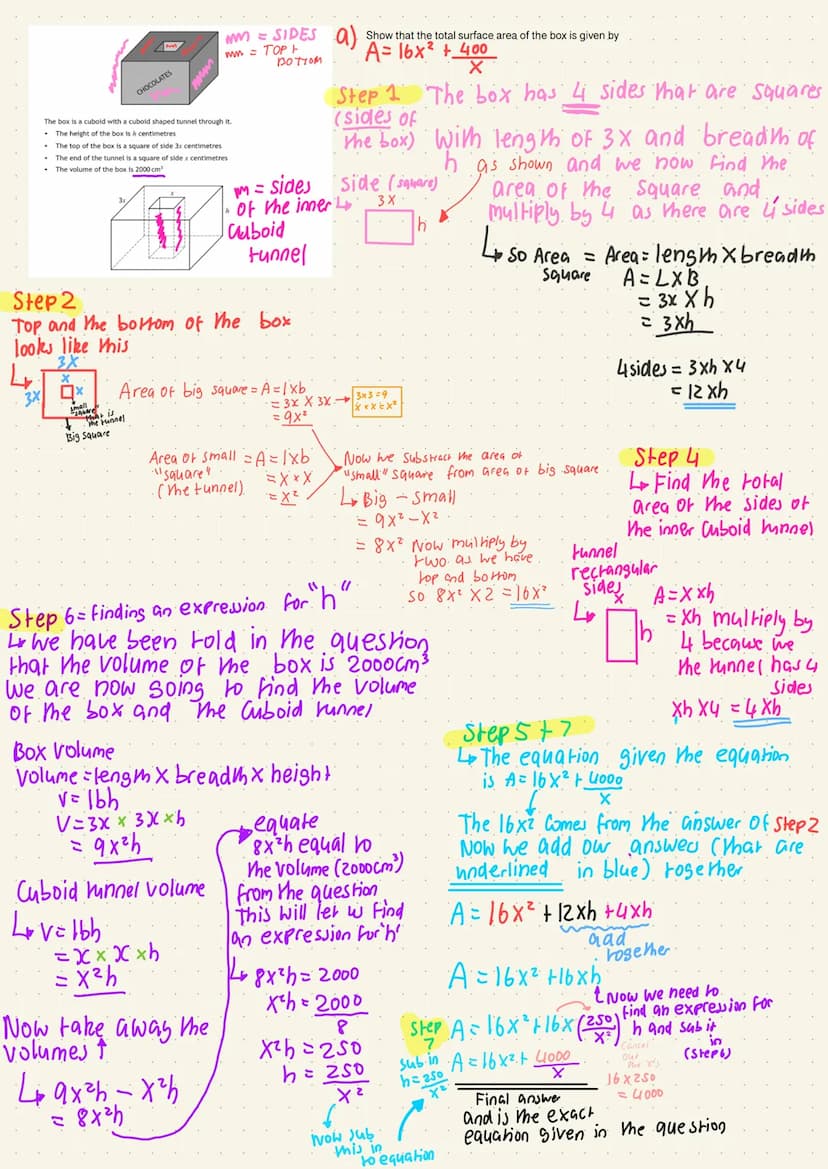 mm = SIDES
mm = TOP +
BOTTOM
CHOCOLATES
The box is a cuboid with a cuboid shaped tunnel through it.
• The height of the box is h centimetres
• The top of the box is a square of side 3x centimetres
• The end of the tunnel is a square of side x centimetres
• The volume of the box is 2000 cm³
3x
x
h
m = sides
of the inner
Cuboid
tunnel
a) Show that the total surface area of the box is given by
A = 16x² + 400/x
Step 1 The box has 4 sides that are squares
(sides of
the box) with length of 3x and breadth of
h as shown and we now find the
area of the square and
multiply by 4 as there are 4 sides
side (square)
3x
h
↳ so Area square = Area = length x breadth
A = L x B
= 3x x h
= 3xh
4 sides = 3xh x 4
= 12xh
Step 2
Top and the bottom of the box
looks like this
3x
3x
x
x
small
"square"
that is
the tunnel
Big square
Area of big square = A = l x b
= 3x x 3x → 3x3=9
x x x = x²
= 9x²
Area of small = A = l x b
"square" = x x x
(the tunnel) = x²
Now we substract the area of
"small" square from area of big square
↳ Big - small
= 9x² - x²
= 8x² Now multiply by
two as we have
top and bottom
so 8x² x 2 = 16x²
Step 4
↳ Find the total
area of the sides of
the inner Cuboid tunnel
tunnel
rectangular
sides
x
h
A = x x h
= xh multiply by
4 because the
the tunnel has 4
sides
xh x 4 = 4xh
Step 6 = finding an expression for "h"
↳ we have been told in the question
that the volume of the box is 2000cm³
we are now going to find the volume
of the box and the Cuboid tunnel
Box volume
Volume = length x breadth x height
v = lbh
V = 3x x 3x x h
= 9x²h
Cuboid tunnel volume
↳ v = lbh
= x x x x h
= x²h
Now take away the
volumes ↑
↳ 9x²h - x²h
= 8x²h
equate
8x²h equal to
the volume (2000cm³)
from the question
This will let us find
an expression for 'h'
↳ 8x²h = 2000
x²h = 2000/8
x²h = 250
h = 250/x²
Now sub
this in
to equation
Step 5 + 7
↳ The equation given the equation
is A = 16x² + 4000/x
The 16x² comes from the answer of Step 2
Now we add our answers (that are
underlined in blue) together
A = 16x² + 12xh + 4xh
add
together
A = 16x² + 16xh
Now we need to
find an expression for
h and sub it
in
(step 6)
Step 7
A = 16x² + 16x(250/x²)
sub in
h = 250/x²
A = 16x² + 4000/x
cancel
out
the x's
16 x 250
= 4000
Final answer
and is the exact
equation given in the question